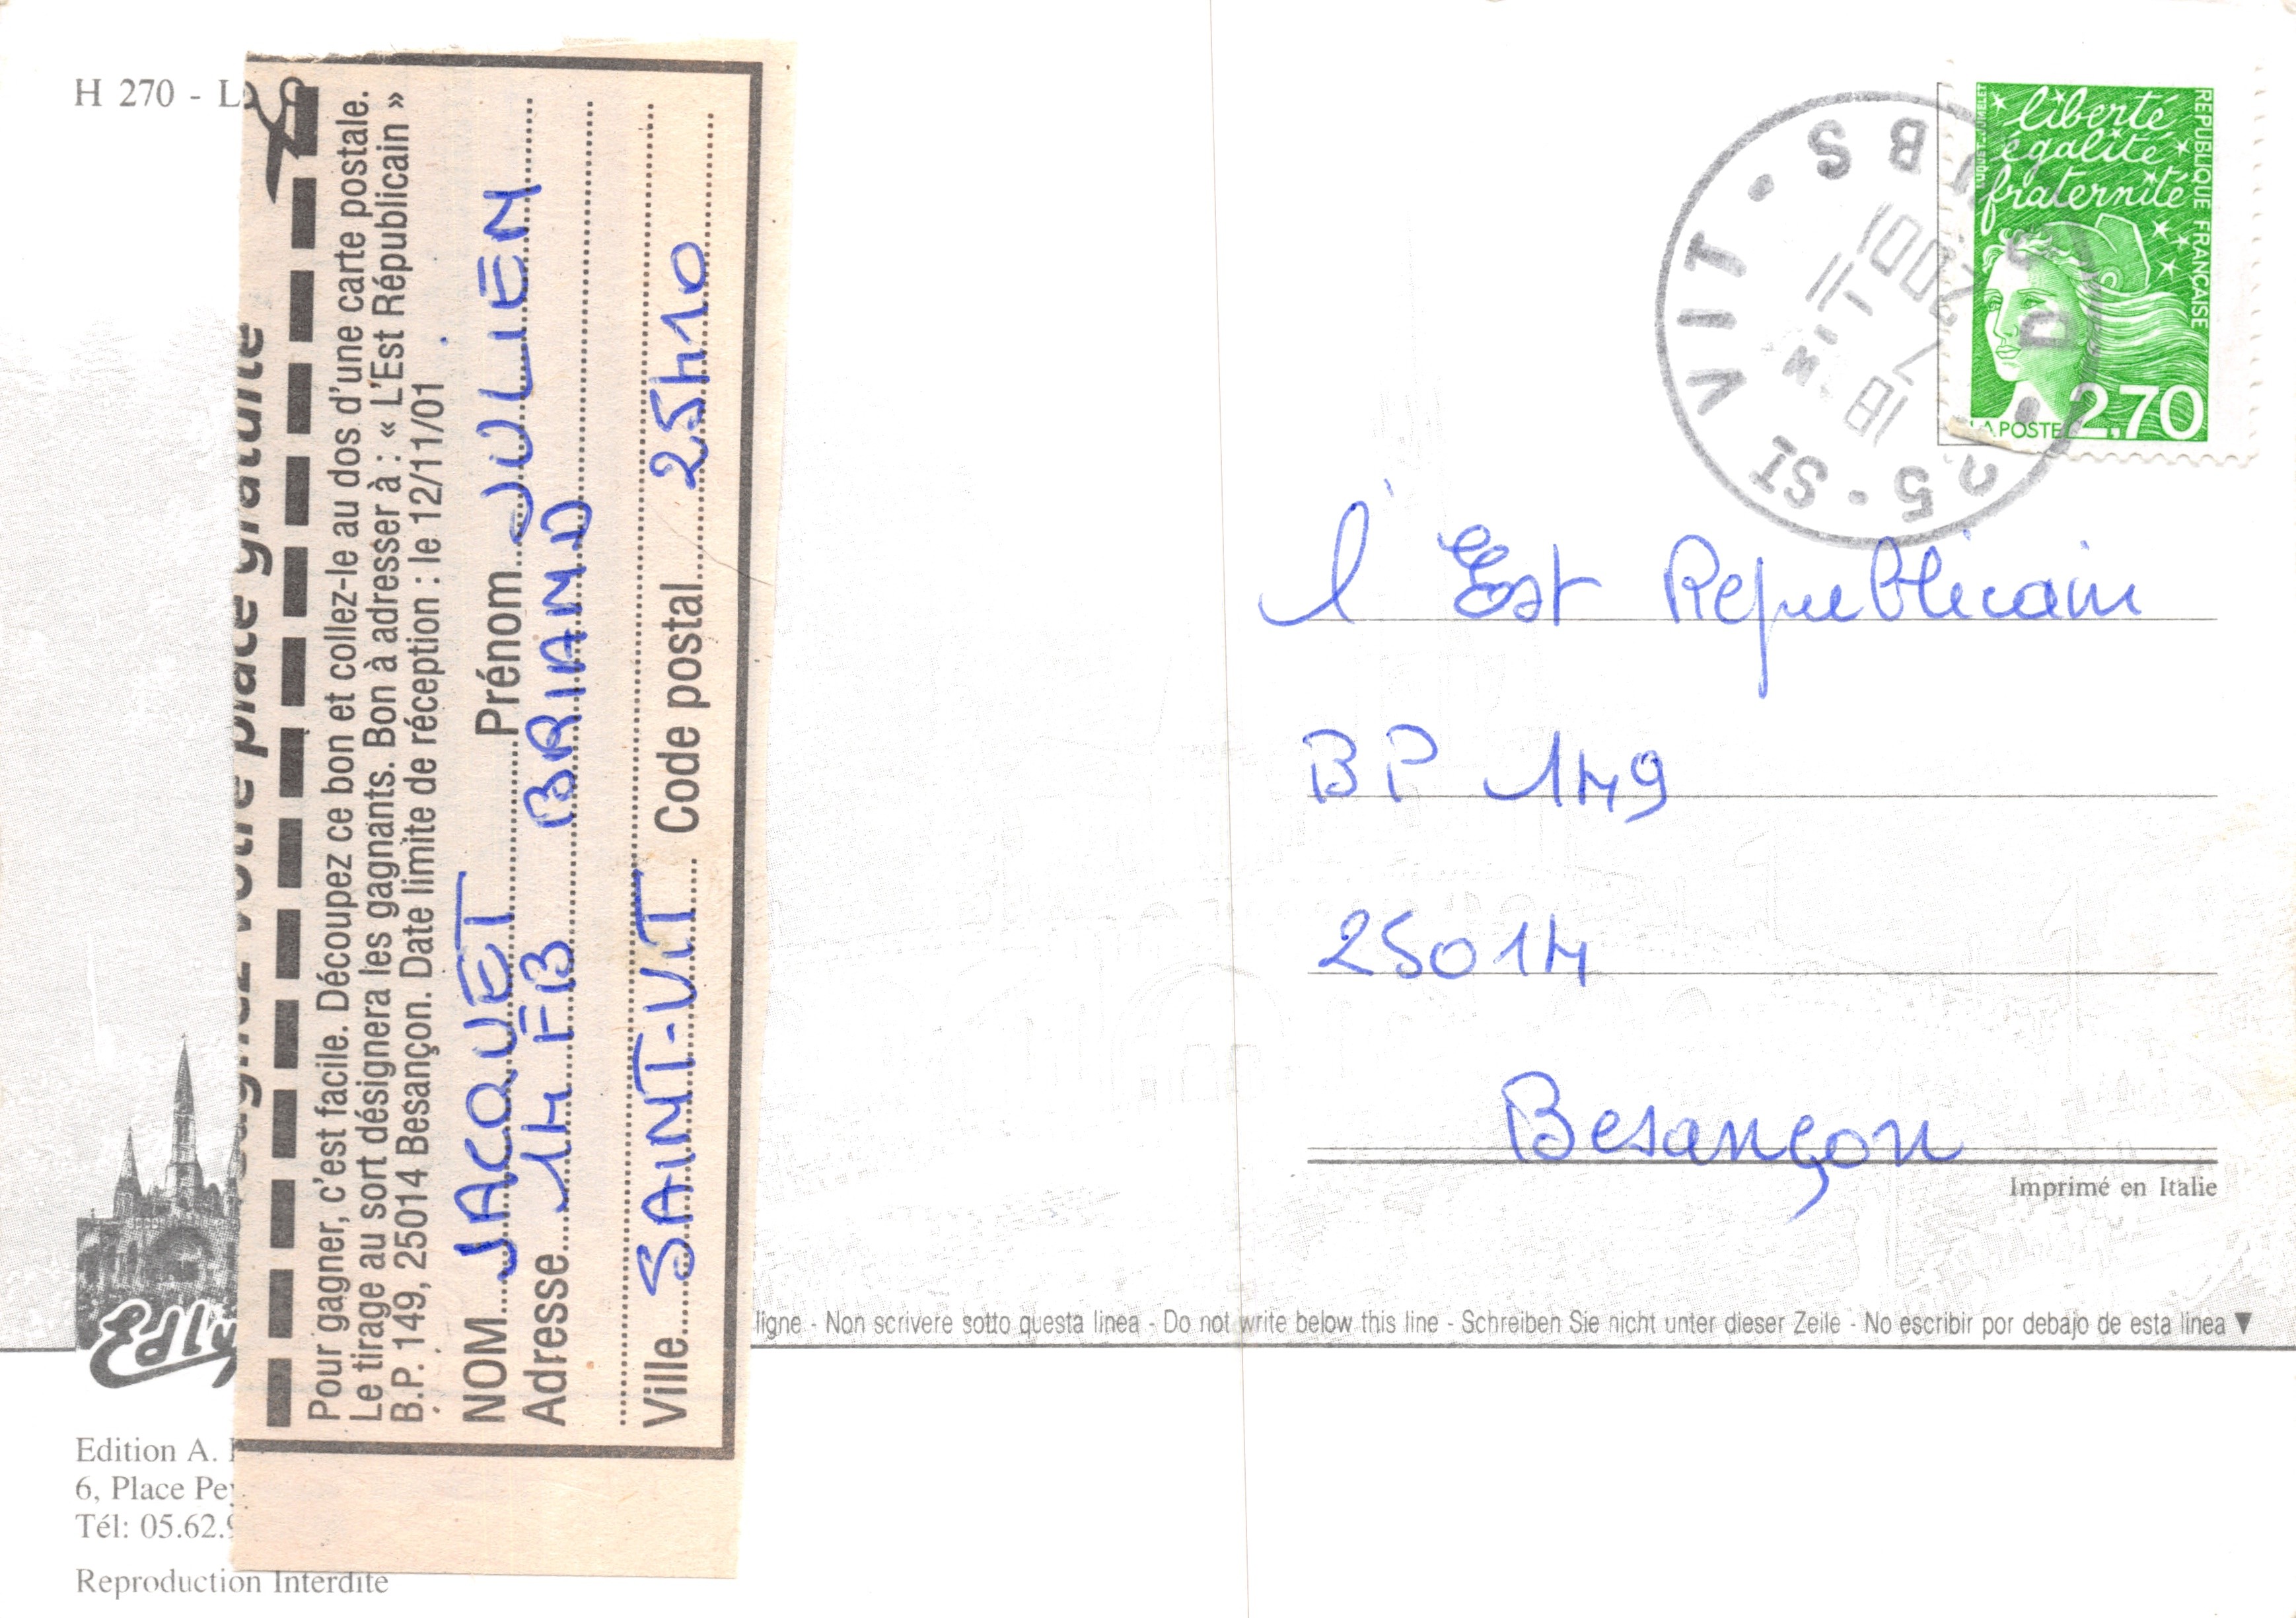 H 270 - L
gagnez votre place gratuite
Pour gagner, c'est facile. Découpez ce bon et collez-le au dos d'une carte postale.
Le tirage au sort désignera les gagnants. Bon à adresser à : « L'Est Républicain »
B.P. 149, 25014 Besançon. Date limite de réception : le 12/11/01
NOM JACQUET Prénom JULIEN
Adresse 14 FB BRIAND
Ville SAINT-VIT Code postal 25410
liberté
égalité
fraternité
RÉPUBLIQUE FRANÇAISE
LA POSTE 2,70
25 · ST VIT · DOUBS
2001
l'Est Republicain
BP 149
25014
Besançon
Imprimé en Italie
ligne - Non scrivere sotto questa linea - Do not write below this line - Schreiben Sie nicht unter dieser Zeile - No escribir por debajo de esta linea ▼
Edition A.
6, Place Pey
Tél: 05.62.9
Reproduction Interdite